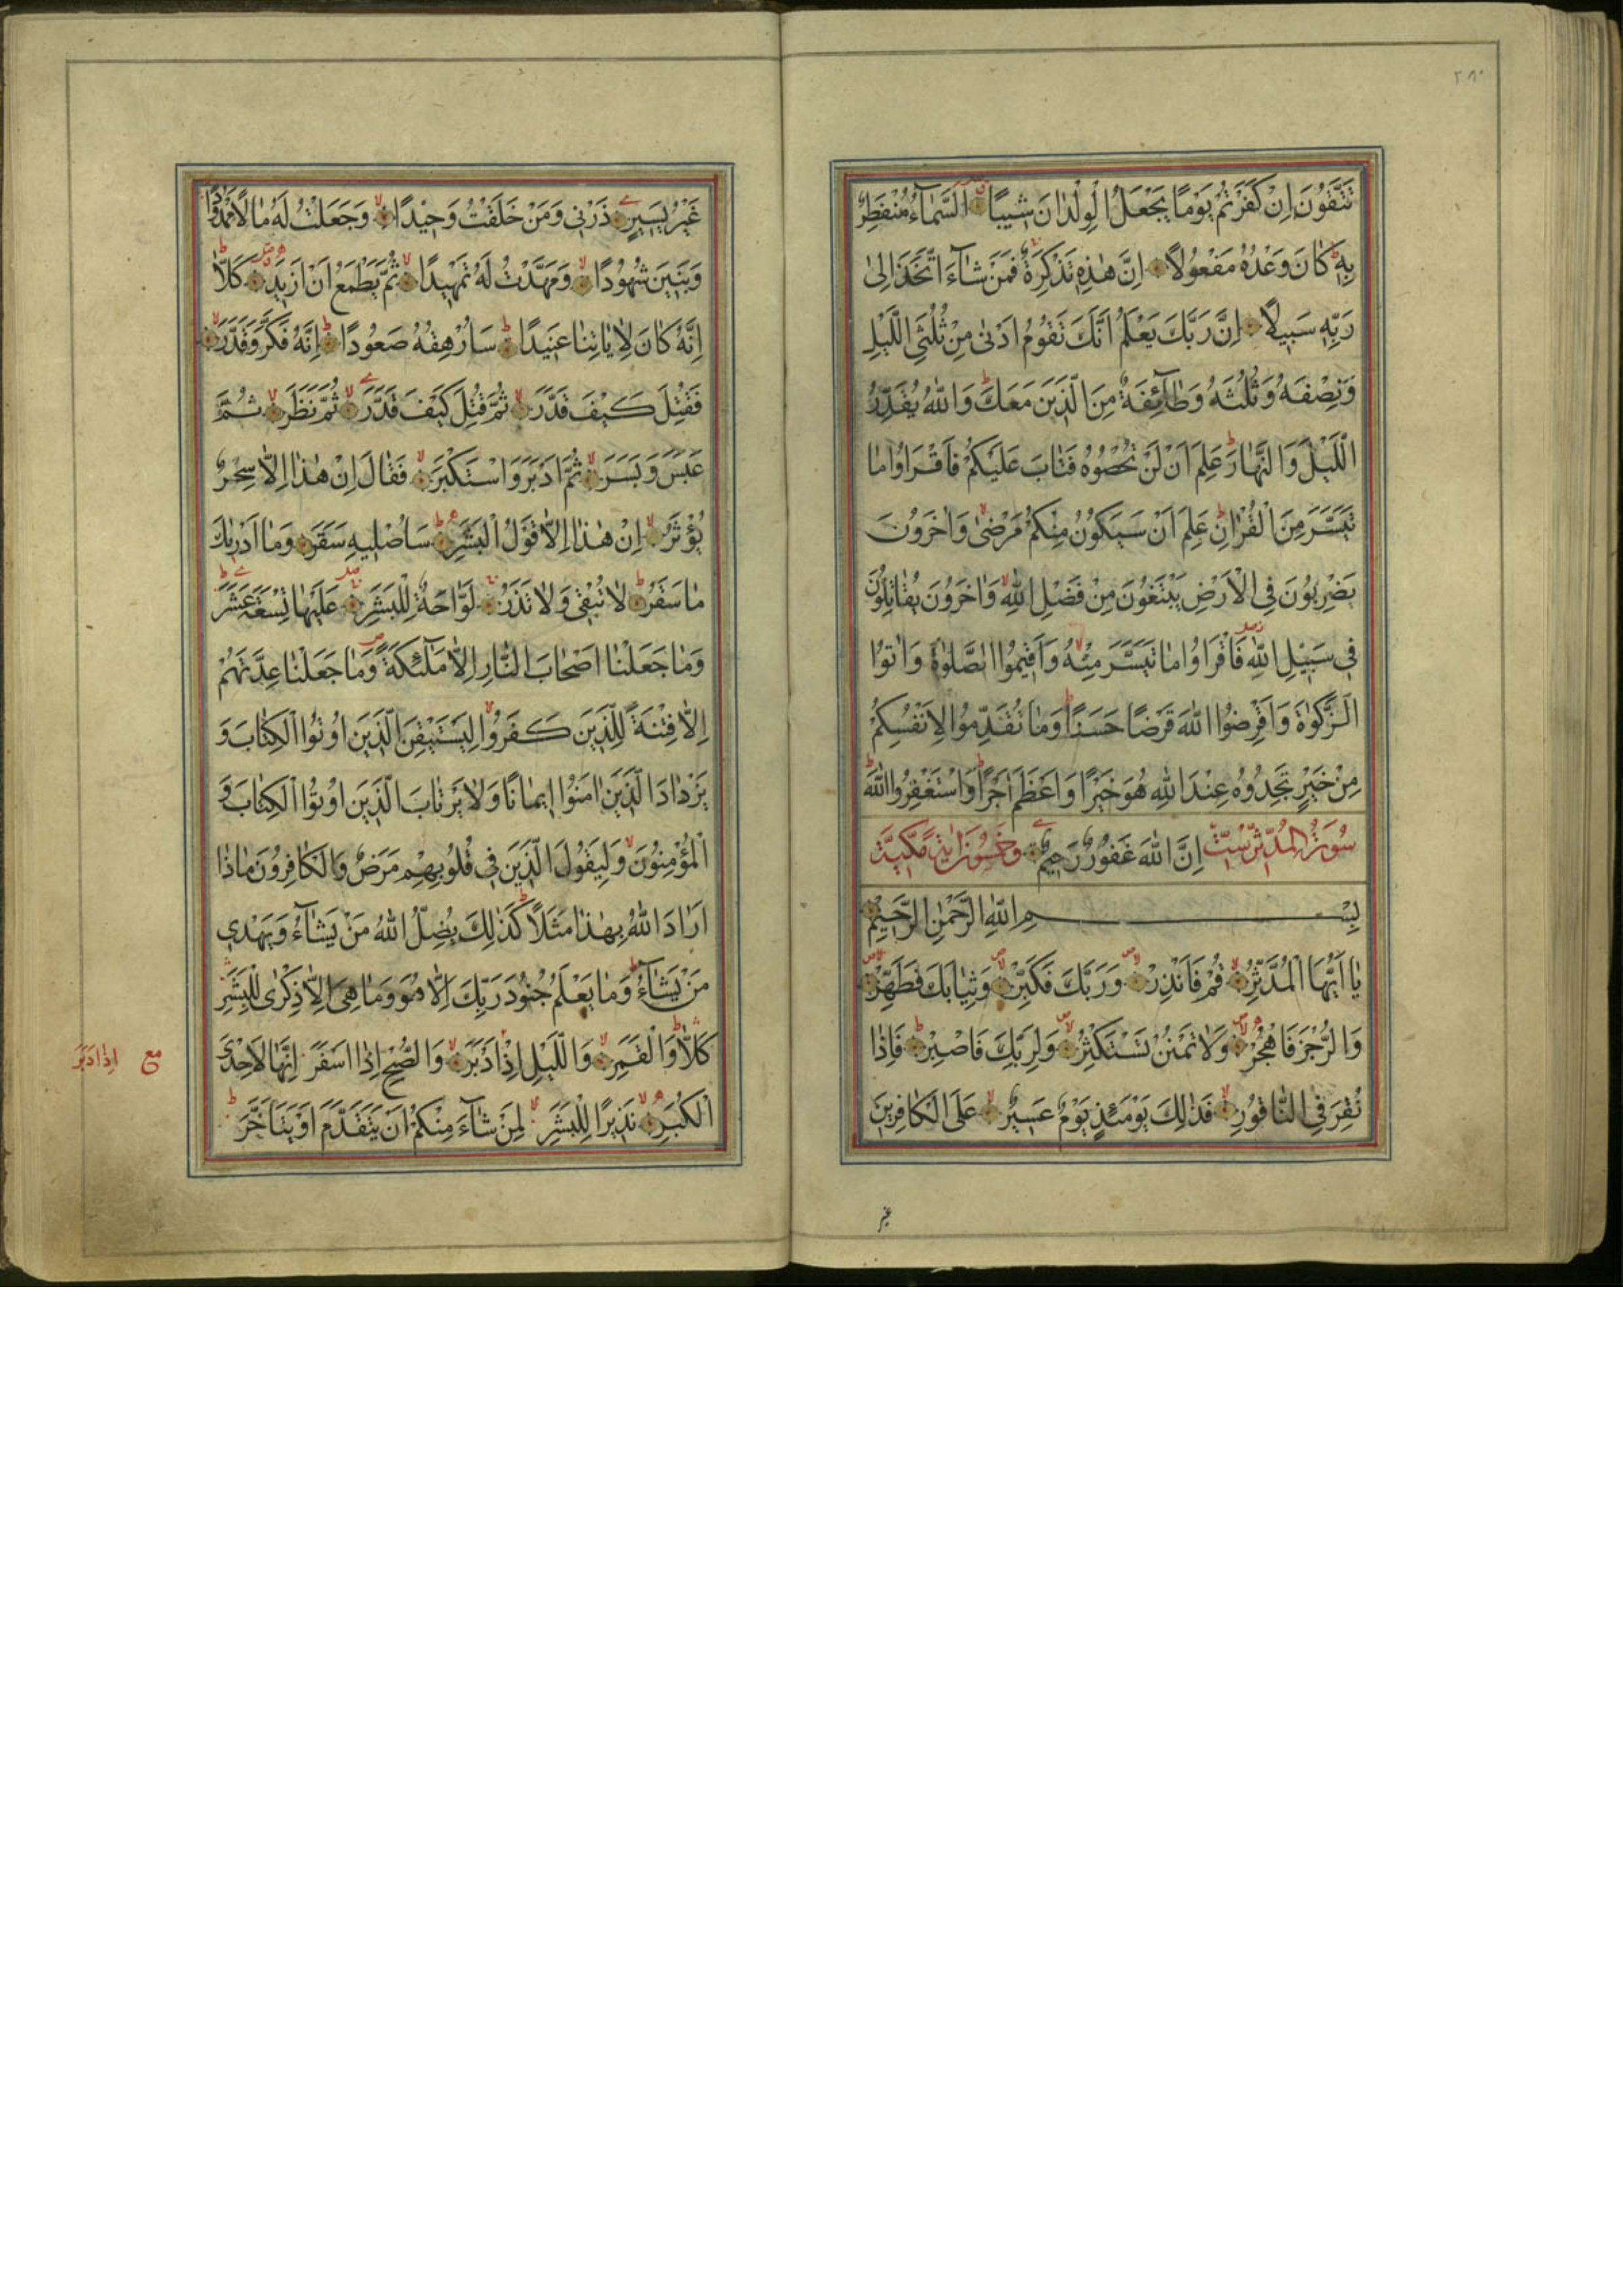 ٢٨٠
تَتَّقُونَ اِنْ كَفَرْتُمْ يَوْمًا يَجْعَلُ الْوِلْدَانَ شٖيبًا اَلسَّمَاۤءُ مُنْفَطِرٌ
بِهٖ كَانَ وَعْدُهُ مَفْعُولًا اِنَّ هٰذِهٖ تَذْكِرَةٌ فَمَنْ شَاۤءَ اتَّخَذَ اِلٰى
رَبِّهٖ سَبٖيلًا اِنَّ رَبَّكَ يَعْلَمُ اَنَّكَ تَقُومُ اَدْنٰى مِنْ ثُلُثَيِ الَّيْلِ
وَنِصْفَهُ وَثُلُثَهُ وَطَاۤئِفَةٌ مِنَ الَّذٖينَ مَعَكَ وَاللّٰهُ يُقَدِّرُ
الَّيْلَ وَالنَّهَارَ عَلِمَ اَنْ لَنْ تُحْصُوهُ فَتَابَ عَلَيْكُمْ فَاقْرَاُوا مَا
تَيَسَّرَ مِنَ الْقُرْاٰنِ عَلِمَ اَنْ سَيَكُونُ مِنْكُمْ مَرْضٰى وَاٰخَرُونَ
يَضْرِبُونَ فِي الْاَرْضِ يَبْتَغُونَ مِنْ فَضْلِ اللّٰهِ وَاٰخَرُونَ يُقَاتِلُونَ
فٖي سَبٖيلِ اللّٰهِ فَاقْرَاُوا مَا تَيَسَّرَ مِنْهُ وَاَقٖيمُوا الصَّلٰوةَ وَاٰتُوا
الزَّكٰوةَ وَاَقْرِضُوا اللّٰهَ قَرْضًا حَسَنًا وَمَا تُقَدِّمُوا لِاَنْفُسِكُمْ
مِنْ خَيْرٍ تَجِدُوهُ عِنْدَ اللّٰهِ هُوَ خَيْرًا وَاَعْظَمَ اَجْرًا وَاسْتَغْفِرُوا اللّٰهَ
سُورَةُ الْمُدَّثِّرِ سِتٌّ اِنَّ اللّٰهَ غَفُورٌ رَحٖيمٌ وَخَمْسُونَ اٰيَةً مَكِّيَّةٌ
بِسْمِ اللّٰهِ الرَّحْمٰنِ الرَّحٖيمِ
يَا اَيُّهَا الْمُدَّثِّرُ قُمْ فَاَنْذِرْ وَرَبَّكَ فَكَبِّرْ وَثِيَابَكَ فَطَهِّرْ
وَالرُّجْزَ فَاهْجُرْ وَلَا تَمْنُنْ تَسْتَكْثِرُ وَلِرَبِّكَ فَاصْبِرْ فَاِذَا
نُقِرَ فِي النَّاقُورِ فَذٰلِكَ يَوْمَئِذٍ يَوْمٌ عَسٖيرٌ عَلَى الْكَافِرٖينَ
غير
غَيْرُ يَسٖيرٍ ذَرْنٖي وَمَنْ خَلَقْتُ وَحٖيدًا وَجَعَلْتُ لَهُ مَالًا مَمْدُودًا
وَبَنٖينَ شُهُودًا وَمَهَّدْتُ لَهُ تَمْهٖيدًا ثُمَّ يَطْمَعُ اَنْ اَزٖيدَ كَلَّا
اِنَّهُ كَانَ لِاٰيَاتِنَا عَنٖيدًا سَاُرْهِقُهُ صَعُودًا اِنَّهُ فَكَّرَ وَقَدَّرَ
فَقُتِلَ كَيْفَ قَدَّرَ ثُمَّ قُتِلَ كَيْفَ قَدَّرَ ثُمَّ نَظَرَ ثُمَّ
عَبَسَ وَبَسَرَ ثُمَّ اَدْبَرَ وَاسْتَكْبَرَ فَقَالَ اِنْ هٰذَا اِلَّا سِحْرٌ
يُؤْثَرُ اِنْ هٰذَا اِلَّا قَوْلُ الْبَشَرِ سَاُصْلٖيهِ سَقَرَ وَمَا اَدْرٰيكَ
مَا سَقَرُ لَا تُبْقٖي وَلَا تَذَرُ لَوَّاحَةٌ لِلْبَشَرِ عَلَيْهَا تِسْعَةَ عَشَرَ
وَمَا جَعَلْنَا اَصْحَابَ النَّارِ اِلَّا مَلٰۤئِكَةً وَمَا جَعَلْنَا عِدَّتَهُمْ
اِلَّا فِتْنَةً لِلَّذٖينَ كَفَرُوا لِيَسْتَيْقِنَ الَّذٖينَ اُوتُوا الْكِتَابَ وَ
يَزْدَادَ الَّذٖينَ اٰمَنُوا اٖيمَانًا وَلَا يَرْتَابَ الَّذٖينَ اُوتُوا الْكِتَابَ وَ
الْمُؤْمِنُونَ وَلِيَقُولَ الَّذٖينَ فٖي قُلُوبِهِمْ مَرَضٌ وَالْكَافِرُونَ مَاذَا
اَرَادَ اللّٰهُ بِهٰذَا مَثَلًا كَذٰلِكَ يُضِلُّ اللّٰهُ مَنْ يَشَاۤءُ وَيَهْدٖي
مَنْ يَشَاۤءُ وَمَا يَعْلَمُ جُنُودَ رَبِّكَ اِلَّا هُوَ وَمَا هِيَ اِلَّا ذِكْرٰى لِلْبَشَرِ
كَلَّا وَالْقَمَرِ وَالَّيْلِ اِذْ اَدْبَرَ وَالصُّبْحِ اِذَا اَسْفَرَ اِنَّهَا لَاِحْدَى
الْكُبَرِ نَذٖيرًا لِلْبَشَرِ لِمَنْ شَاۤءَ مِنْكُمْ اَنْ يَتَقَدَّمَ اَوْ يَتَاَخَّرَ
مع اِذَا دَبَرَ